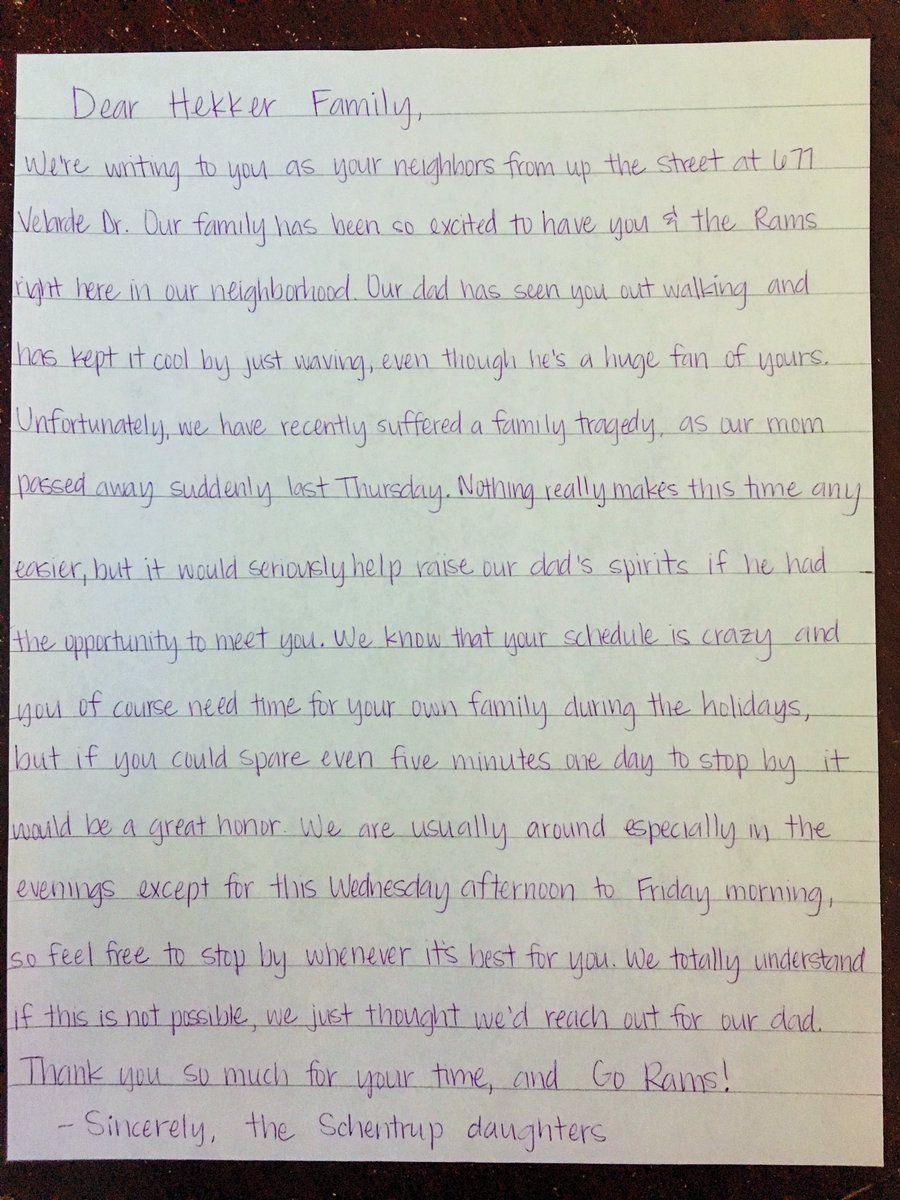 Dear Hekker Family,
We're writing to you as your neighbors from up the street at 677
Velarde Dr. Our family has been so excited to have you & the Rams
right here in our neighborhood. Our dad has seen you out walking and
has kept it cool by just waving, even though he's a huge fan of yours.
Unfortunately, we have recently suffered a family tragedy, as our mom
passed away suddenly last Thursday. Nothing really makes this time any
easier, but it would seriously help raise our dad's spirits if he had
the opportunity to meet you. We know that your schedule is crazy and
you of course need time for your own family during the holidays,
but if you could spare even five minutes one day to stop by it
would be a great honor. We are usually around especially in the
evenings except for this Wednesday afternoon to Friday morning,
so feel free to stop by whenever it's best for you. We totally understand
if this is not possible, we just thought we'd reach out for our dad.
Thank you so much for your time, and Go Rams!
- Sincerely, the Schentrup daughters